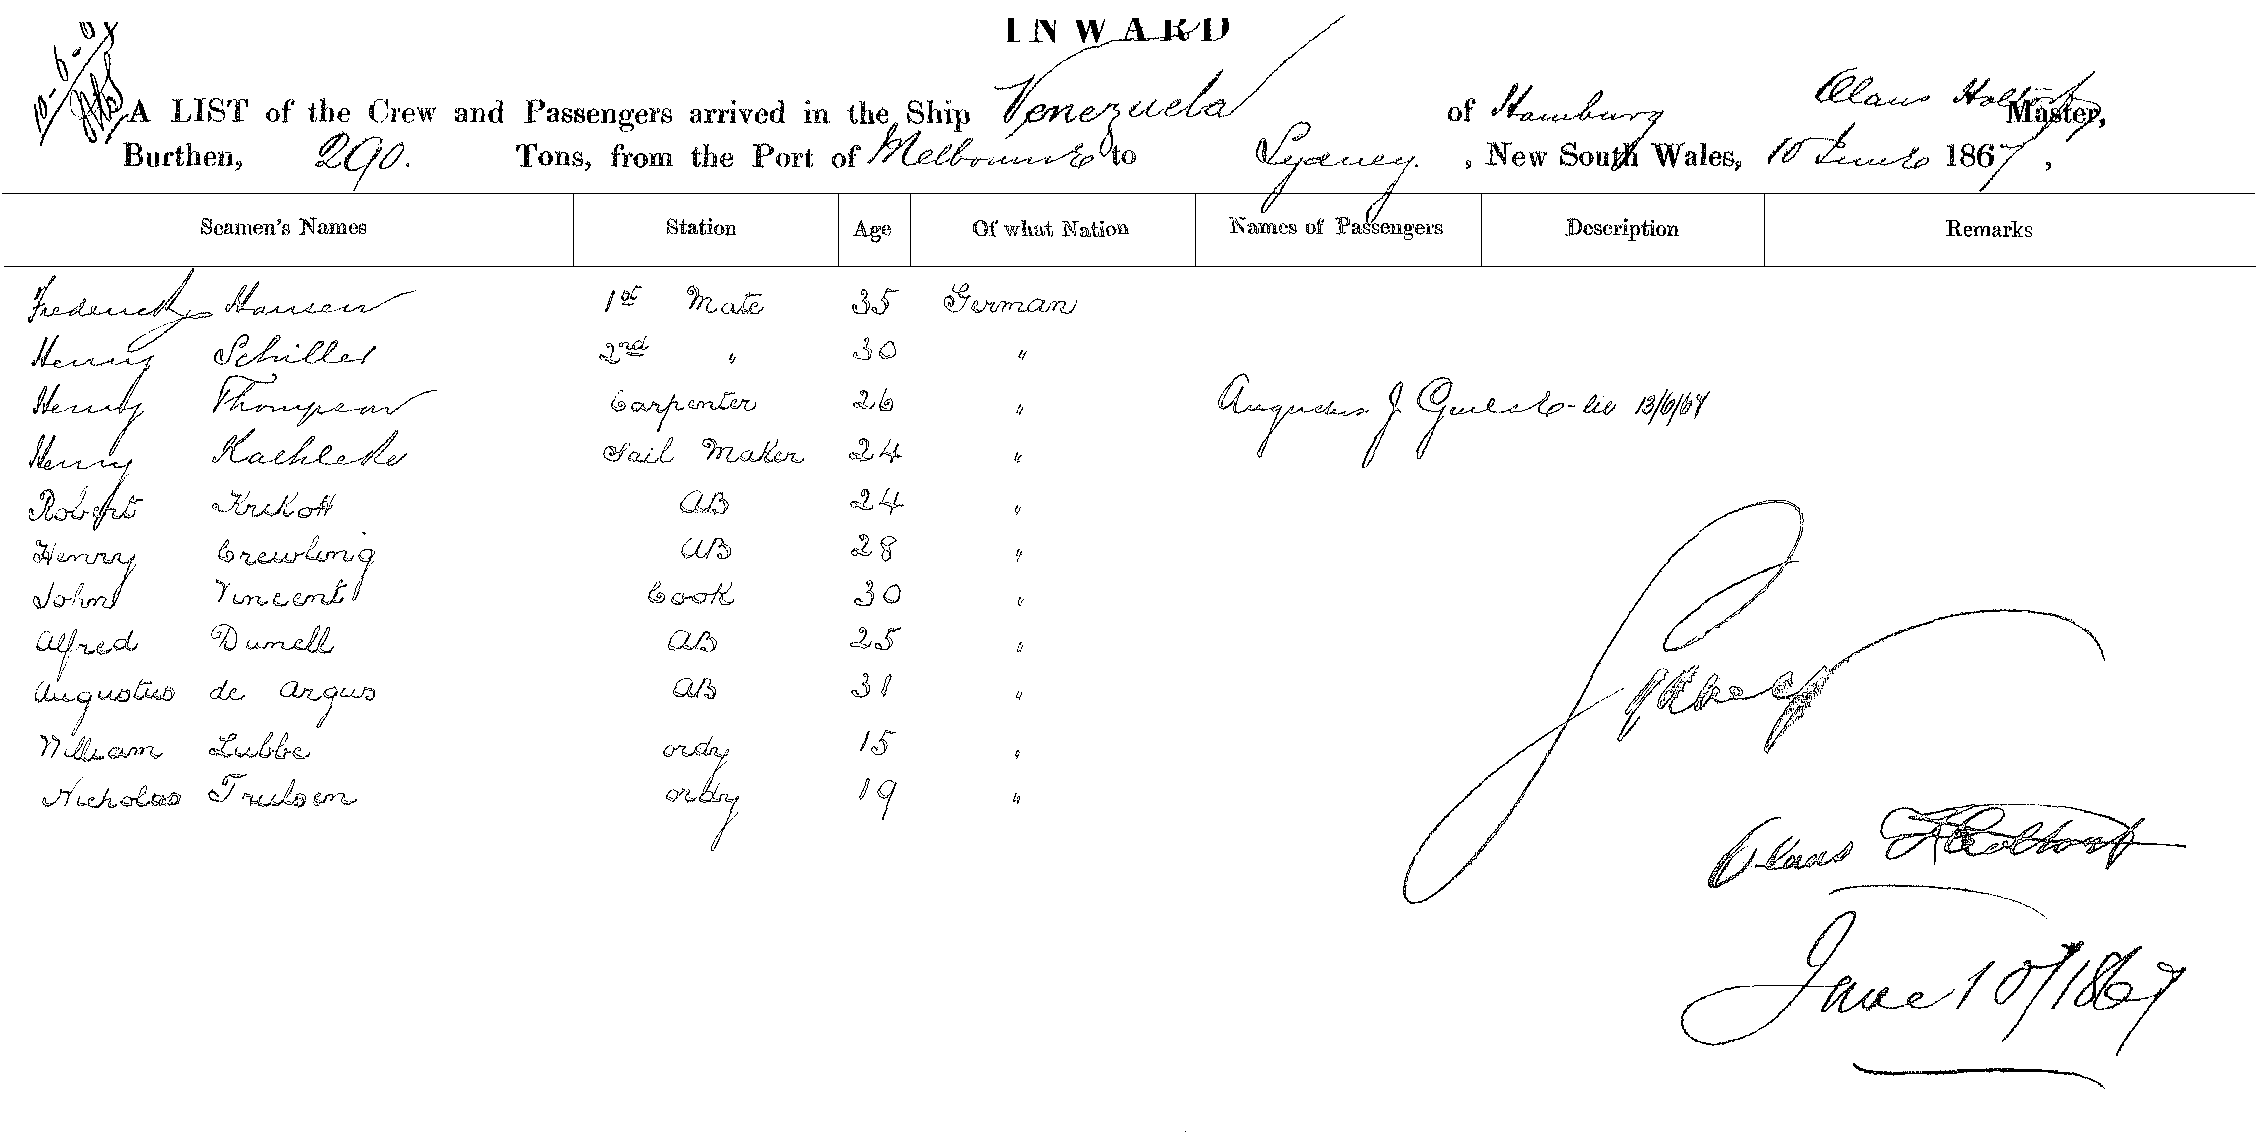 INWARD
A LIST of the Crew and Passengers arrived in the Ship Venezuela of Hamburg Claus Holtorf Master,
Burthen, 290. Tons, from the Port of Melbourne to Sydney. , New South Wales, 10 June 1867,
Seamen's Names Station Age Of what Nation Names of Passengers Description Remarks
Frederick Hansen 1st Mate 35 German
Henry Schiller 2nd " 30 "
Henry Thompson Carpenter 26 "
Augustus J 13/6/67
Henry Kaehleke Sail Maker 24 "
Robert Krikott AB 24 "
Henry Crewling AB 28 "
John Vincent Cook 30 "
Alfred Dumell AB 25 "
Augustus de Argus AB 31 "
William Lubbe ordy 15 "
Nicholas Trulsen ordy 19 "
Claus Holtorf
June 10/1867